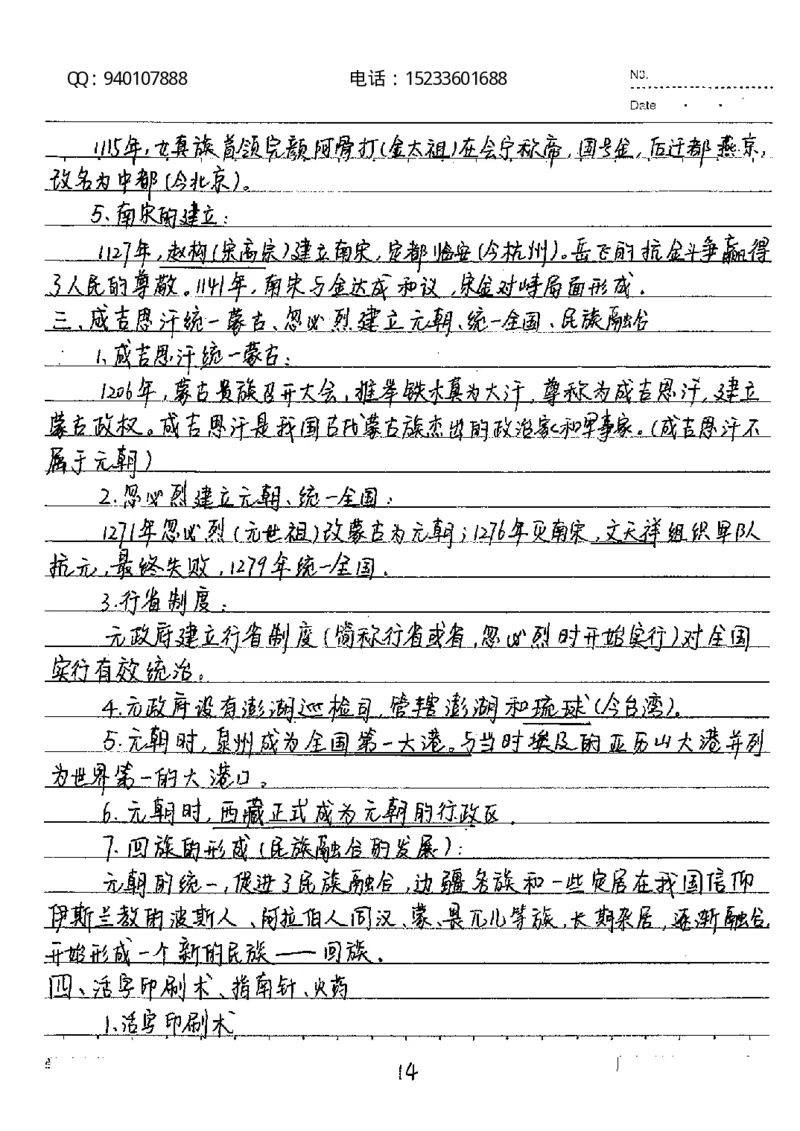 QQ：940107888 电话：15233601688 No.
Date
1115年，女真族首领完颜阿骨打(金太祖)在会宁称帝，国号金，后迁都燕京，
改名为中都(今北京)。
5.南宋的建立：
1127年，赵构(宋高宗)建立南宋，定都临安(今杭州)。岳飞的抗金斗争赢得
了人民的尊敬。1141年，南宋与金达成和议，宋金对峙局面形成．
三、成吉思汗统一蒙古、忽必烈建立元朝、统一全国、民族融合
1、成吉思汗统一蒙古：
1206年，蒙古贵族召开大会，推举铁木真为大汗，尊称为成吉思汗，建立
蒙古政权。成吉思汗是我国古代蒙古族杰出的政治家和军事家。(成吉思汗不
属于元朝)
2.忽必烈建立元朝、统一全国：
1271年忽必烈(元世祖)改蒙古为元朝；1276年灭南宋，文天祥组织军队
抗元，最终失败，1279年统一全国．
3.行省制度：
元政府建立行省制度(简称行省或省，忽必烈时开始实行)对全国
实行有效统治。
4.元政府设有澎湖巡检司，管辖澎湖和琉球(今台湾)。
5.元朝时，泉州成为全国第一大港。与当时埃及的亚历山大港并列
为世界第一的大港口。
6.元朝时，西藏正式成为元朝的行政区．
7.回族的形成(民族融合的发展)：
元朝的统一，促进了民族融合，边疆各族和一些定居在我国信仰
伊斯兰教的波斯人、阿拉伯人同汉、蒙、畏兀儿等族，长期杂居，逐渐融合，
开始形成一个新的民族——回族．
四、活字印刷术、指南针、火药
1.活字印刷术
14